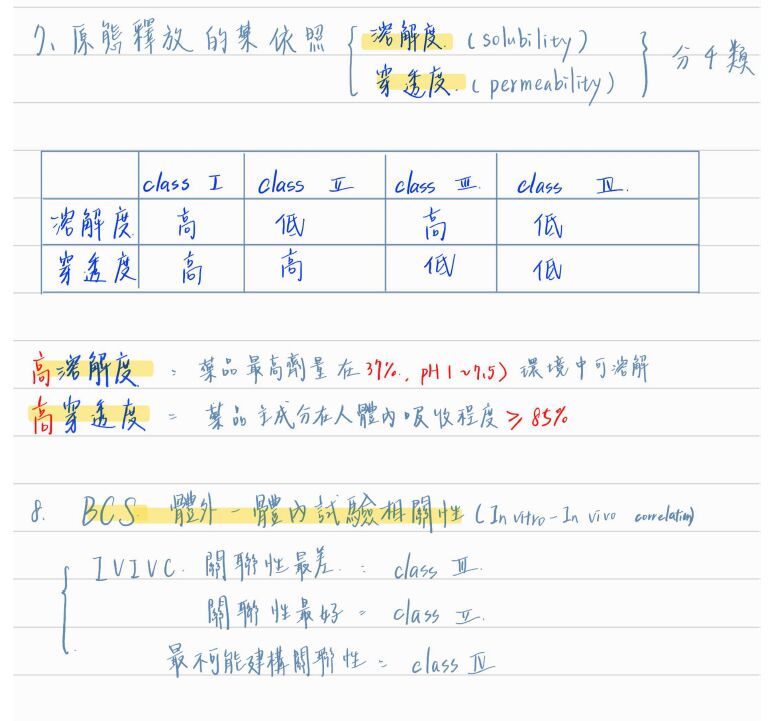 7、原態釋放的藥依照 { 溶解度 (solubility) } 分4類
穿透度 (permeability)
class I class II class III. class IV.
溶解度 高 低 高 低
穿透度 高 高 低 低
高溶解度 : 藥品最高劑量在37%., pH 1~7.5) 環境中可溶解
高穿透度 = 藥品主成分在人體內吸收程度 ≥ 85%
8. BCS 體外-體內試驗相關性 (In vitro-In vivo correlation)
IVIVC. 關聯性最差. : class III.
關聯性最好 = class II.
最不可能建構關聯性 = class IV